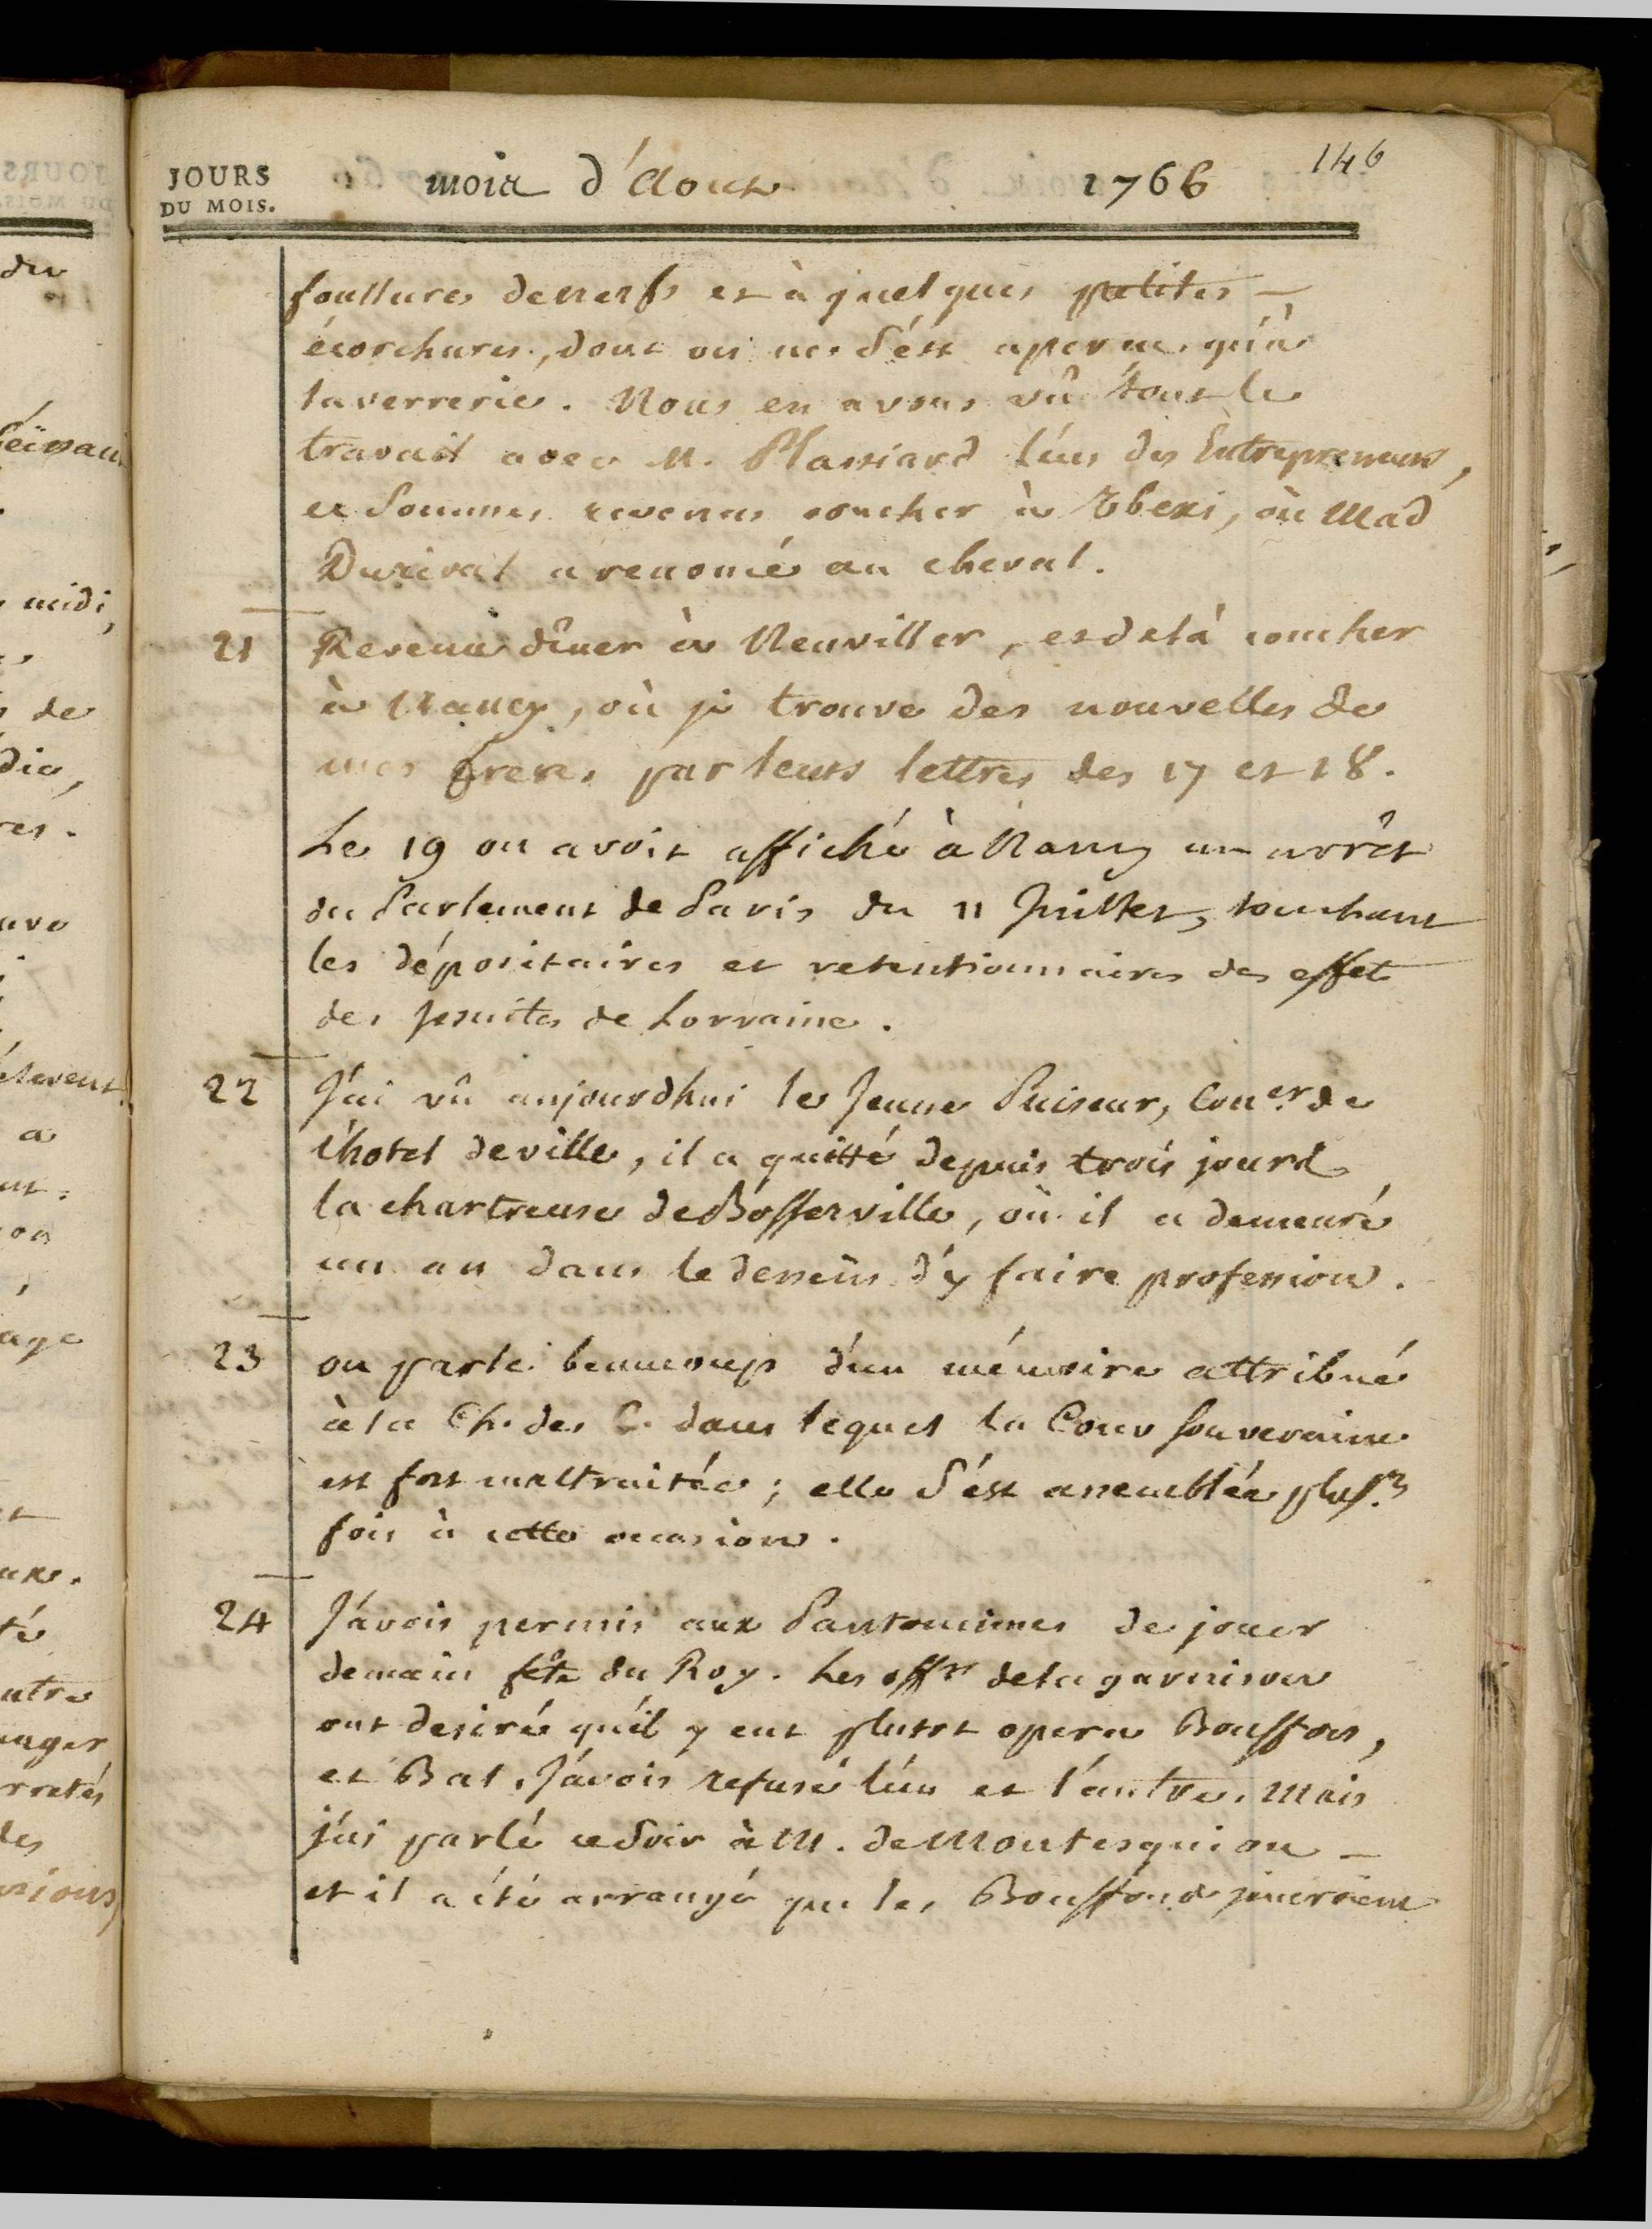 146
JOURS
DU MOIS.
mois d'Aout 1766
foullures de nerfs et à quelques petites
écorchures, dont on ne s'est apercu qu'à
la verrerie. Nous en avons vû tout le
travail avec M. Plassiard l'un des Entrepreneurs,
et sommes revenus coucher à Tbexi, où Mad
Durival a renoncé au cheval.
21 Revenu dîner à Neuviller, et delà coucher
à Nancy, où je trouve des nouvelles de
mes freres par leurs lettres des 17 et 18.
Le 19 on avoit affiché à Nancy un arrêt
du Parlement de Paris du 11 Juillet, touchant
les dépositaires et retentionnaires des effets
des Jesuites de Lorraine.
22 J'ai vû aujourdhui le Jeune Puiseur, Con.er de
l'hotel de ville, il a quitté depuis trois jours
la chartreuse de Bosserville, où il a demeuré
un an dans le dessein d'y faire profession.
23 on parle beaucoup d'un mémoire attribué
à la Ch. des C. dans lequel la Cour Souveraine
est fort maltraitée; elle s'est assemblée plus.rs
fois à cette occasion.
24 J'avois permis aux Pantomimes de jouer
demain fête du Roy. Les off.rs de la garnison
ont desiré qu'il y eut plutot opera Bouffon,
et Bal. J'avois refusé l'un et l'autre. Mais
j'ai parlé ce soir à M. de Montesquiou
et il a été arrangé que les Bouffons joueroient